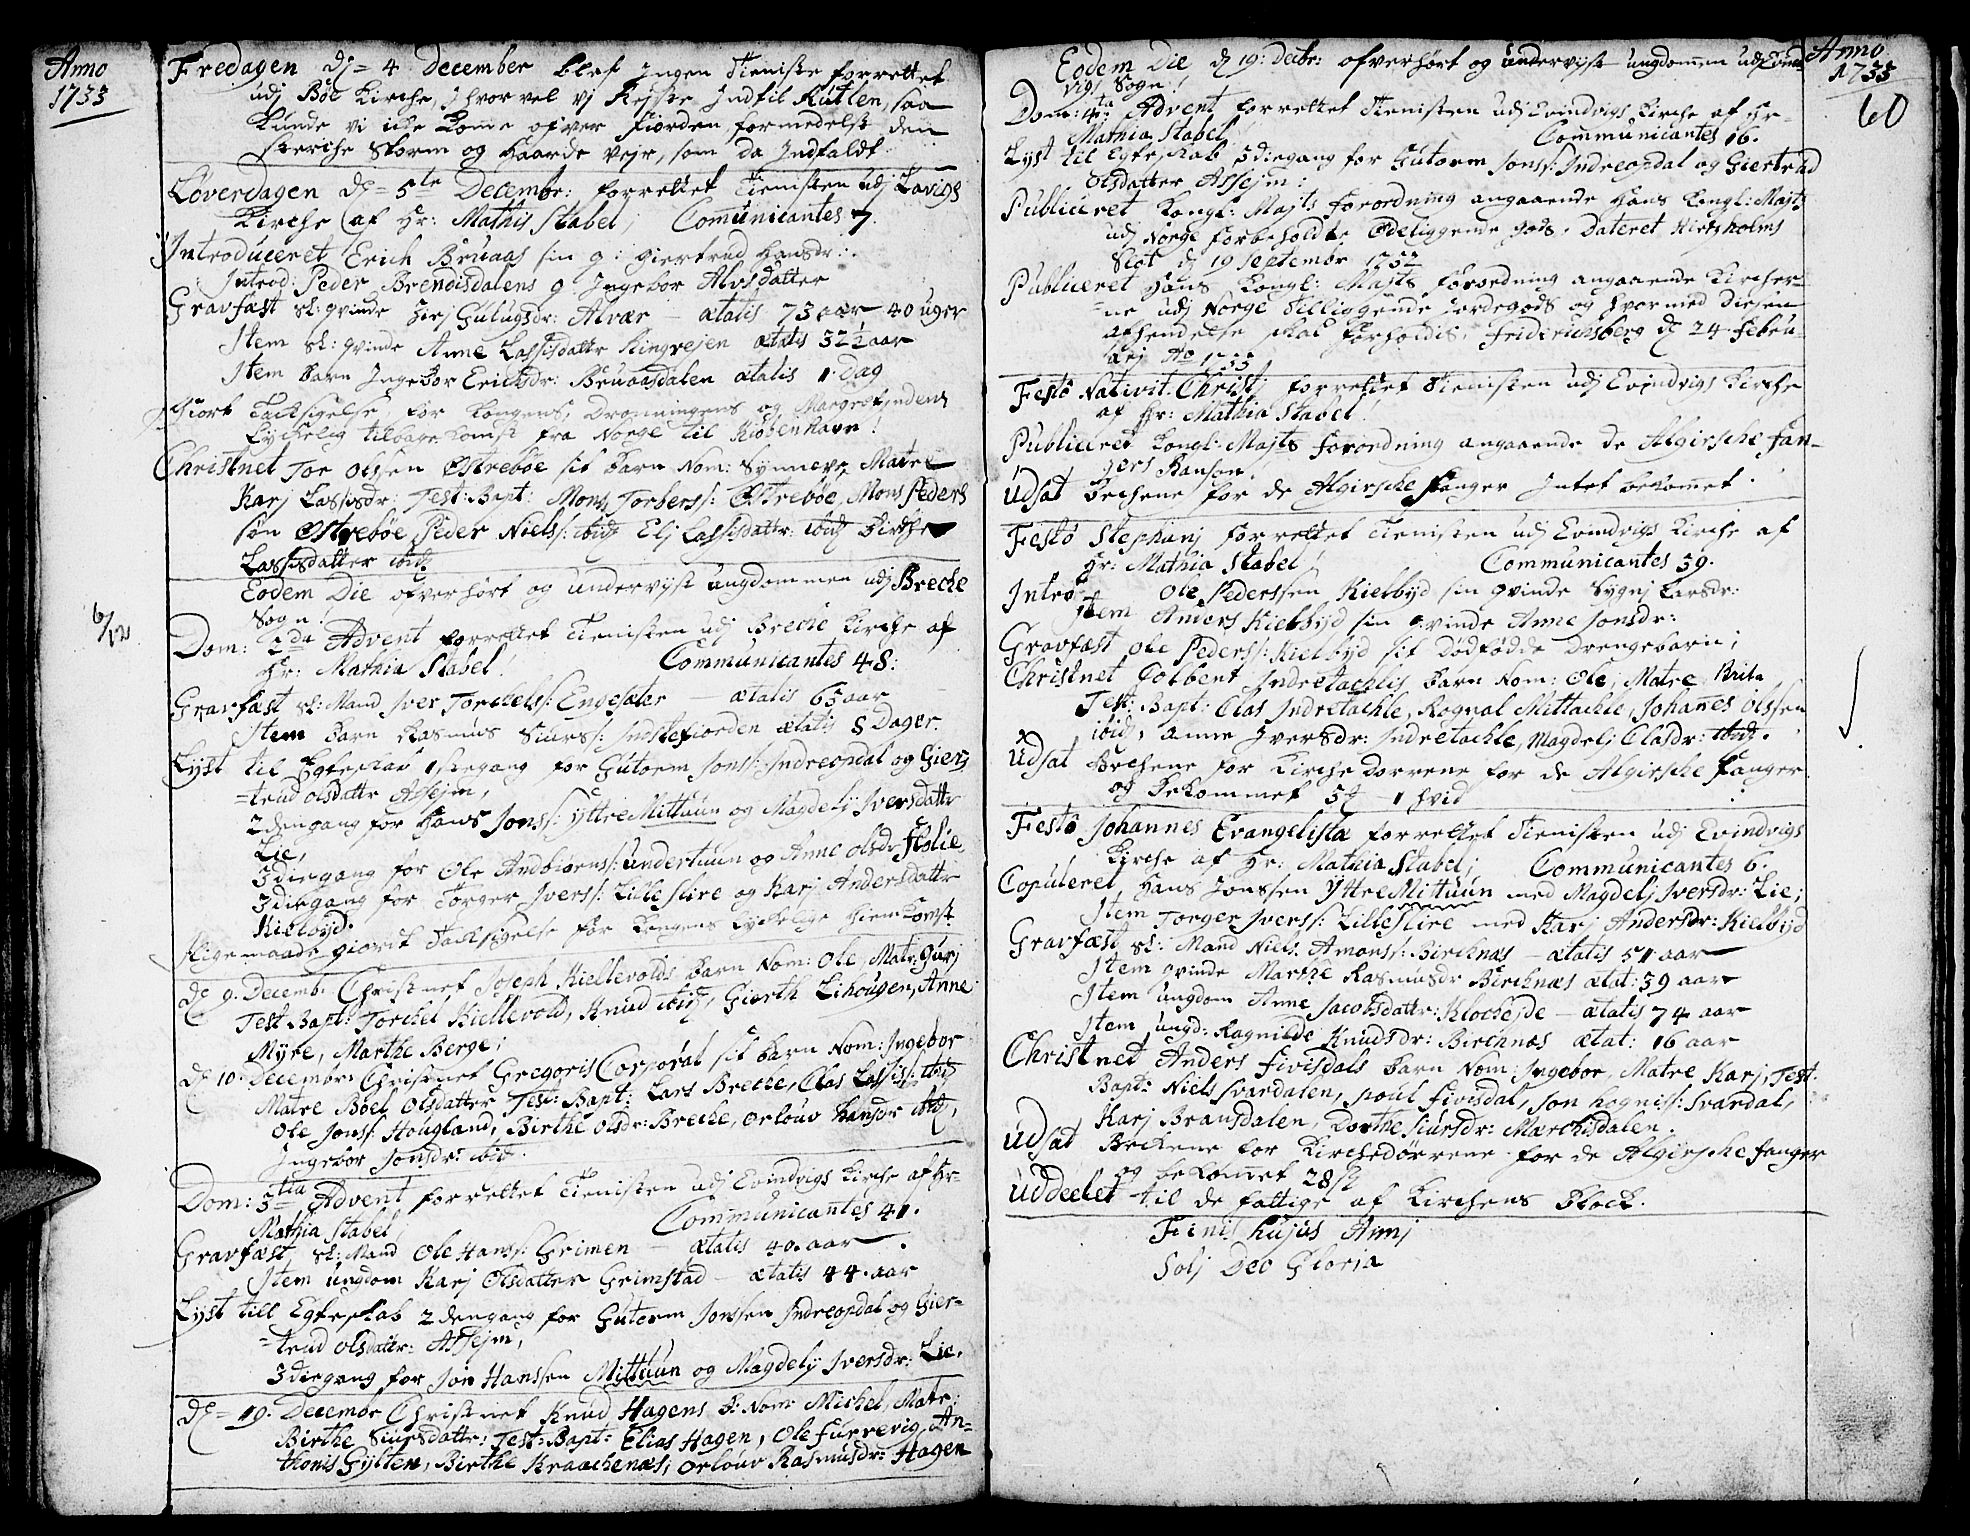 Anno
1733
Fredagen dj = 4 December blef Ingen Tieniste forrettet
udj Böe Kirche, Ihvor vel vj Rejste Indtil Rutlen, saa
Kunde vi icke Komme ofver Fiorden formedelst den
sterche Storm og haarde Vejr, som da Indfaldt.
Löverdagen d = 5te Decembr: forrettet Tienisten udj Lavigs
Kirche af Hr: Mathis Stabel, Comunicantes 7.
Introduceret Erich Bruaas sin q: Giertrud Hansdr:
Introd: Peder Brendisdalens q Ingebor Alvsdatter
Gravfæst sl: qvinde Zirj Gulugsdr: Alvær – ætatis 73 aar 40 uger
Item sl: qvinde Anne Lassisdattr Ringrejen ætatis 32½ aar
Item barn Ingebor Erichsdr: Bruaasdalen ætatis 1 Dag
Giort Tacksigelse for Kongens, Dronningens og Margrefindens
Lyckelig tilbage Komst fra Norge til Kiöbenhavn!
Christnet Tor Olssen Östreböe sit barn Nom: Synneve, Matre
Karj Lassisdr: Test: Bapt: Mons Torbers: Östreböe, Mons Peders
sön Östreböe, Peder Niels: ibid Elj Lassisdattr: ibid Birthe
Lassisdatter ibid
Eodem Die ofverhört og undervjst ungdommen udj Breche
Sogn!
6/12
Dom: 2da Advent forrettet Tienisten udj Breche Kirche af
Hr: Mathia Stabel! Communicantes 48.
Gravfæst sl: Mand Iver Torchels: Engesæter – ætatis 65 aar
Item barn Rasmus Siurs: Indstefiorden ætatis 8 Dager.
Lyst til Egteskab 1stegang for Gutorm Jons: Indreopdal og Gier-
=trud Olsdattr Assejm,
2dengang for Hans Jons: Yttre Mittuun og Magdelj Iversdattr
Lie,
3diegang for Ole Andbiörns: Undertuun og Anne Olsdr Stölie,
3diegang for Torger Ivers: Lille Slire og Karj Andersdattr
Kielbyd.
Ligemaade giordt Tacksigelse for Kongens Lyckelige Hiem Komst
d 9. Decemb: Christnet Joseph Kiellevolds barn Nom: Ole, Matr: Gurj
Test Bapt: Torchel Kiellevold, Knud ibid, Gierth Lihougen, Anne
Myre, Marthe Berge;
d 10. Decembr: Christnet Gregoris Corporal sit barn Nom: Ingebor
Matre Boel Olsdatter Test: Bapt: Lars Breche, Clas Lassis: ibid
Ole Jons: Hougland, Birthe Olsdr: Breche, Orlouv Hansdr ibid,
Ingebor Jonsdr: ibid.
Dom: 3tia Advent forrettet Tienisten udj Evindvigs Kirche af Hr.
Mathia Stabel, Communicantes 41.
Gravfæst sl: Mand Ole Hans: Grimen – ætatis 40. aar
Item ungdom Karj Olsdatter Grimstad – ætatis 44. aar
Lyst till Egteskab 2dengang for Gutorm Jonssen Indreopdal og Gier-
=trud Olsdattr: Assejm,
3diegang for Jon Hanssen Mittuun og Magdelj Iversdr: Lie.
d = 19. Decembr Christnet Knud Hagens B: Nom: Michel, Matr:
Birthe Siursdattr: Test: Bapt: Elias Hagen, Ole Furrevig, An-
thonis Gylten, Birthe Kraachenæs, Orlouv Rasmusdr: Hagen
Anno
1733
60
Eodem Die d 19: Decbr: ofverhört og undervjst ungdommen udj Evind-
vigs Sogn!
Dom: 4ta Advent forrettet Tienisten udj Evindvigs Kirche af Hr-
Mathia Stabel! Communicantes 16.
Lyst til Egteskab 3diegang for Gutorm Jons: Indreopdal og Giertrud
Olsdatter Assejm:
Publiceret Kongl: Majts Forordning angaaende Hans Kongl: Majts
udj Norge forbeholdte Ödeliggende gods. Dateret Hirsholms
Slot d 19 Septembr 1732
Publiceret Hans Kongl: Majts Forordning angaaende Kircher-
=ne udj Norge tilliggende jordegods og hvormed diesen
afhendelse skal forholdes, Friderichsberg d 24 Febru-
arj Ao 1733
Festo Nativit. Christj forrettet Tienisten udj Evindvigs Kirche
af Hr: Mathia Stabel
Publiceret Kongl: Majts Forordning angaaende de Algirsche Fan-
gers Ranson!
Udsat Bechene for de Algirsche Fanger Intet bekommet.
Festo Stephanj forrettet Tienisten udj Evindvigs Kirche af
Hr: Mathia Stabel! Communicantes 39.
Intro: Ole Pederssen Kielbyd sin qvinde Sygnj Larsdr:
Item Anders Kielbyd sin qvinde Anne Jonsdr:
Gravfæst Ole Peders: Kielbyd sit Dödfödde Drengebarn;
Christnet Colbent Indretachlis barn Nom: Ole, Matre Brita
Test: Bapt: Clas Indretachle, Rognal Mittachle, Johannes Olssen
ibid, Anne Iversdr: Indretachle, Magdelj Clasdr: ibid.
Udsat Bechene for Kirche Dorrene for de Algirsche Fanger
og bekommet 5 1 hvid
Festo Johannes Evangelistæ forrettet Tienisten udj Evindvigs
Kirche af Hr: Mathia Stabel; Communicantes 6.
Copuleret, Hans Jonssen Yttre Mittuun med Magdelj Iversdr: Lie;
Item Torger Ivers: Lille Slire med Karj Andersdr: Kielbyd
Gravfæst sl: Mand Niels Amons: Birchnæs – ætatis 51 aar
Item qvinde Marthe Rasmusdr Birchnæs ætat: 39 aar
Item ungdom Anne Jacobsdattr: Klochejde – ætatis 74 aar
Item ungd: Ragnilde Knudsdr: Birchnæs ætat: 16 aar
Christnet Anders Fivisdals barn Nom: Ingebor, Matre Karj, Test:
Bapt: Niels Svardalen, Poul Fivisdal, Jon Hognis: Svardal,
Karj Bransdalen, Dorthe Siursdr: Mærchisdalen.
Udsat Bechene for Kirchedörrene for de Algirsche Fanger
og bekommet 28
Uddeelet til de fattige af Kirchens Block.
Finis hujus Annj
Solj Deo Gloria